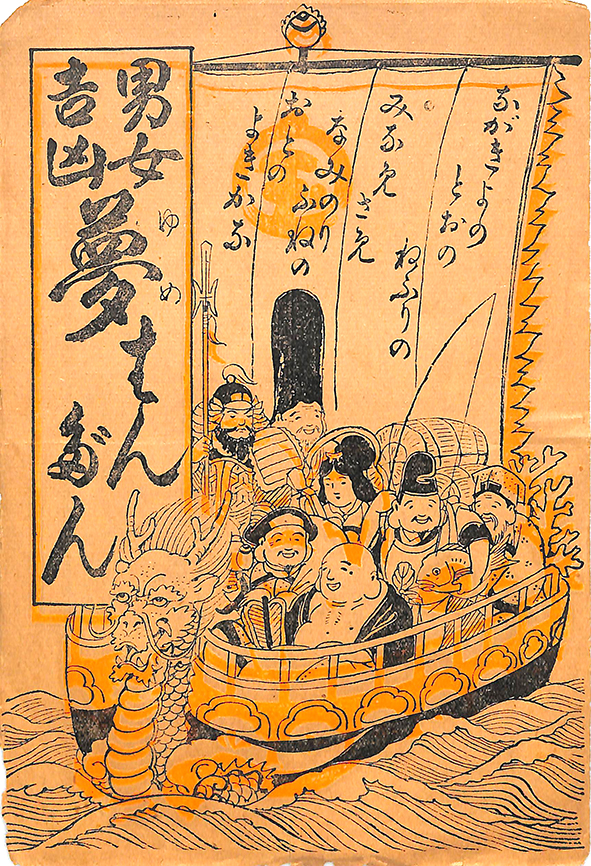 ながきよの
とおの
ねふりの
みなめ
さめ
なみのり
ふねの
おとの
よきかな
男女
吉凶
夢
ゆめ
はん
だん